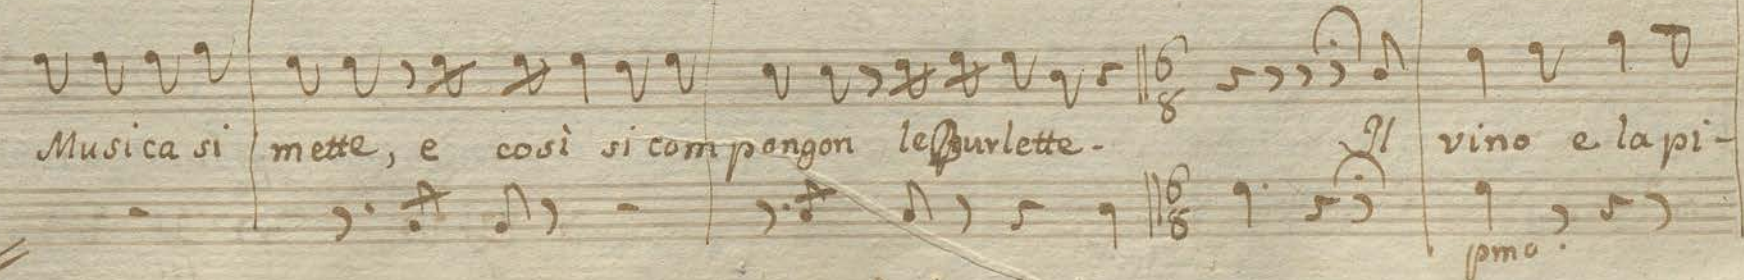 Musica si mette, e così si compongon le Burlette. Il vino e la pi-
pmo.